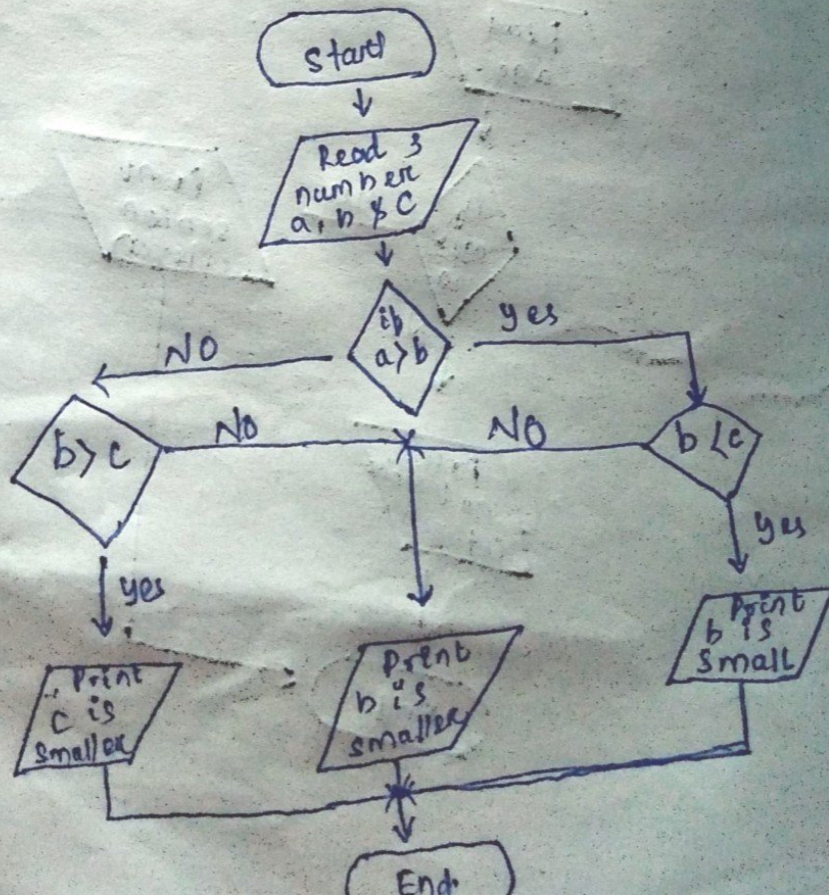 Start
Read 3
number
a, b & c
if
a>b
yes
NO
b> c
No
NO
b <c
yes
yes
Print
c is
smaller
Print
b is
smaller
Print
b is
small
End